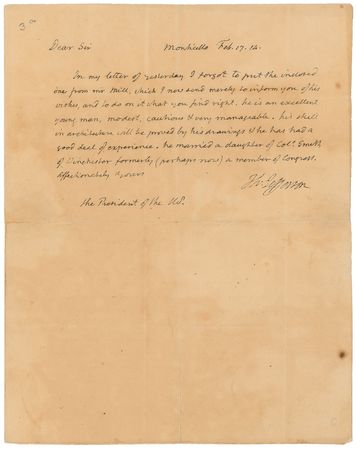 Dear Sir Monticello Feb. 17. 14.
In my letter of yesterday I forgot to put the inclosed
one from mr Mill, which I now send merely to inform you of his
wishes, and to do on it what you find right. he is an excellent
young man, modest, cautious & very manageable. his skill
in architecture will be proved by his drawings & he has had a
good deal of experience. he married a daughter of Colo. Smith
of Winchester formerly (perhaps now) a member of Congress.
Affectionately yours
Th: Jefferson
the President of the U.S.